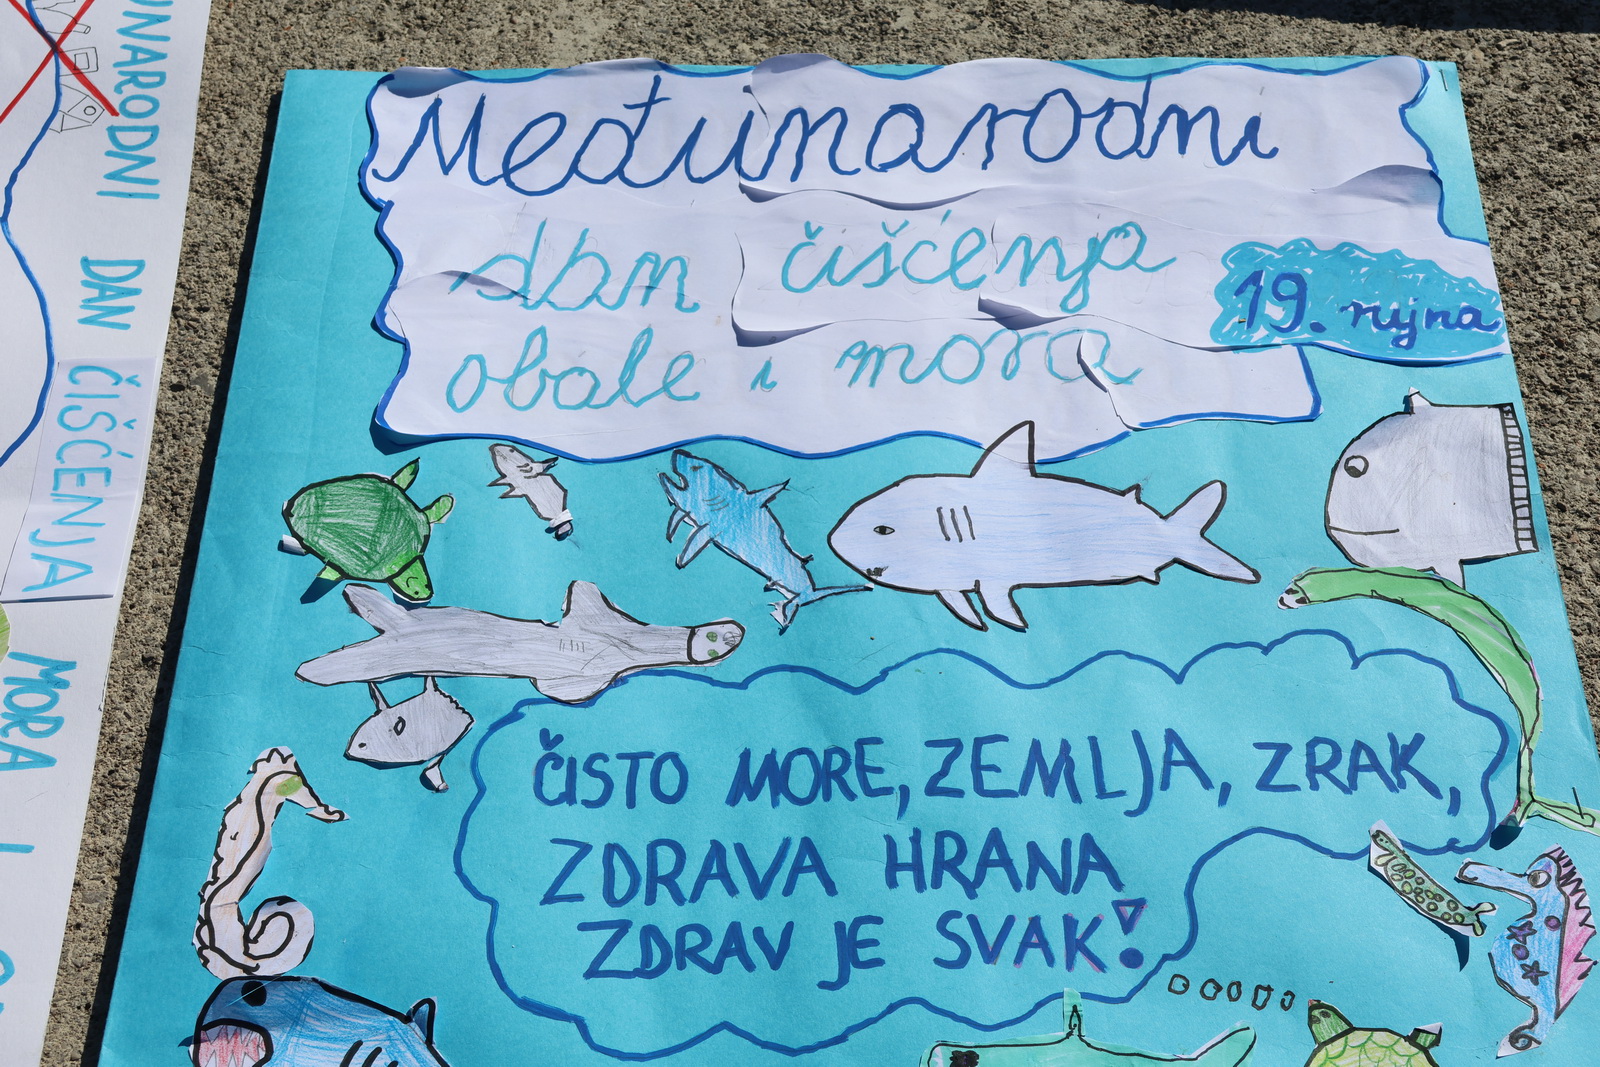 Međunarodni
dan čišćenja
obale i mora
19. rujna
ČISTO MORE, ZEMLJA, ZRAK,
ZDRAVA HRANA
ZDRAV JE SVAK!
UNARODNI DAN ČIŠĆENJA
MORA I